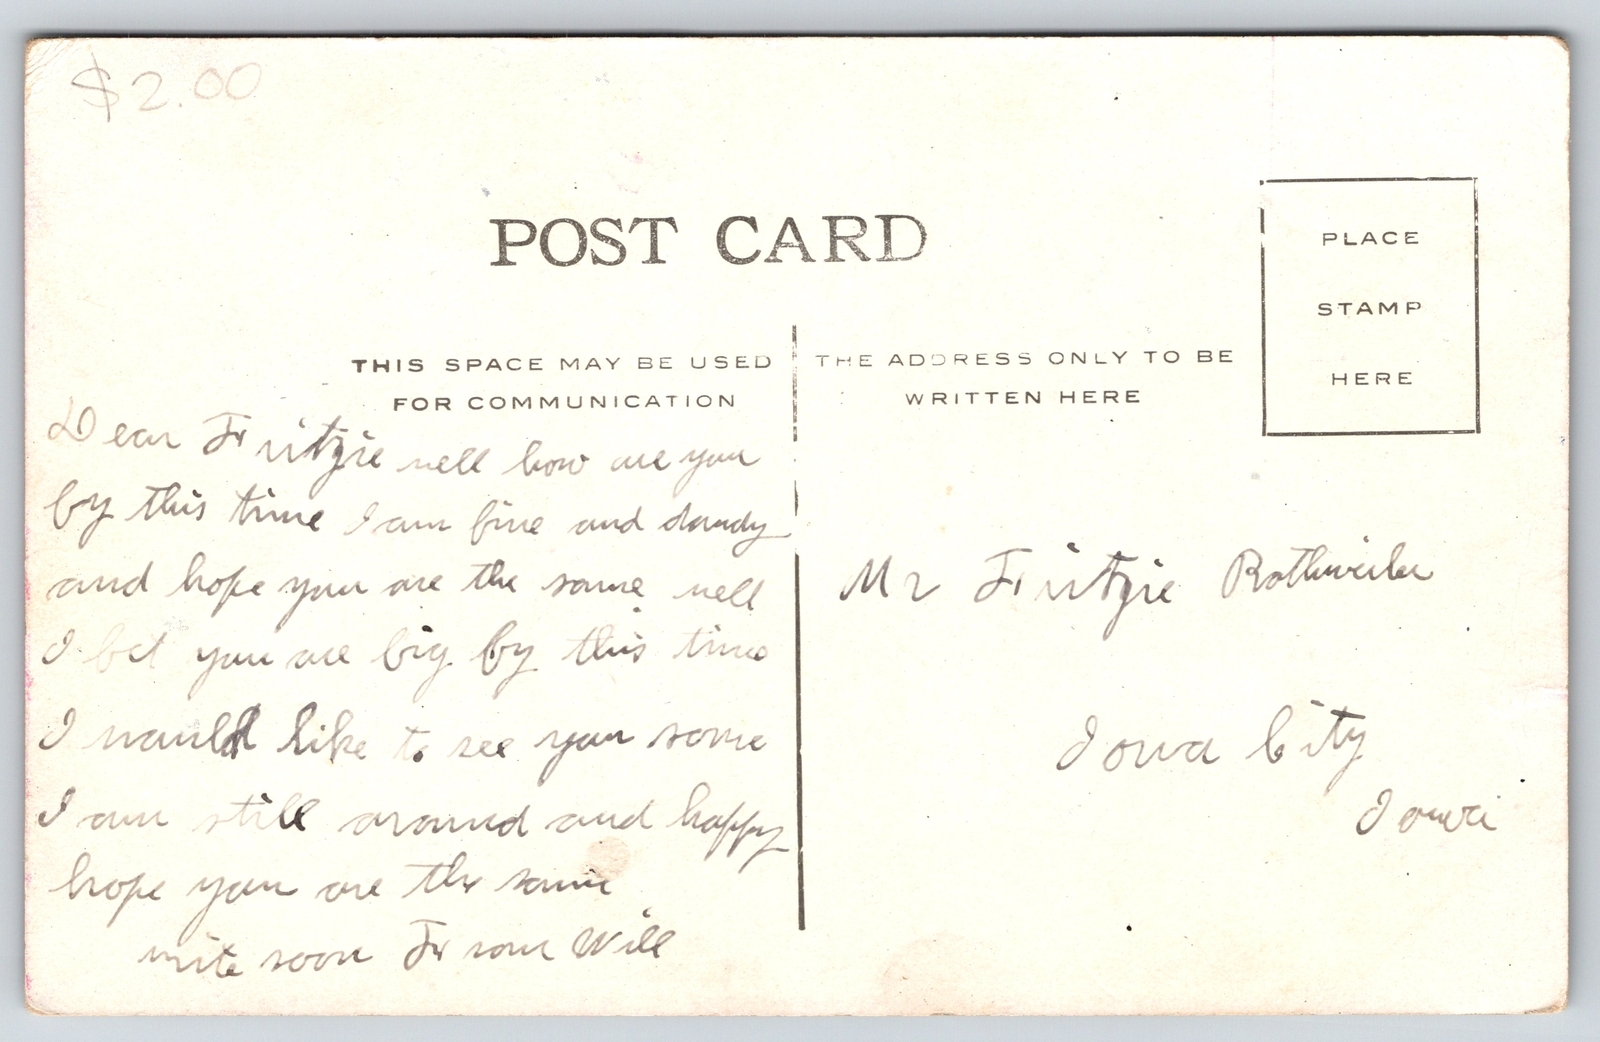 $2.00
POST CARD
PLACE
STAMP
HERE
THIS SPACE MAY BE USED
FOR COMMUNICATION
THE ADDRESS ONLY TO BE
WRITTEN HERE
Dear Fritzie well how are you
by this time I am fine and dandy
and hope you are the same well
I bet you are big by this time
I would like to see you some
I am still around and happy
hope you are the same
write soon From Will
Mr Fritzie Rothweiler
Iowa City
Iowa